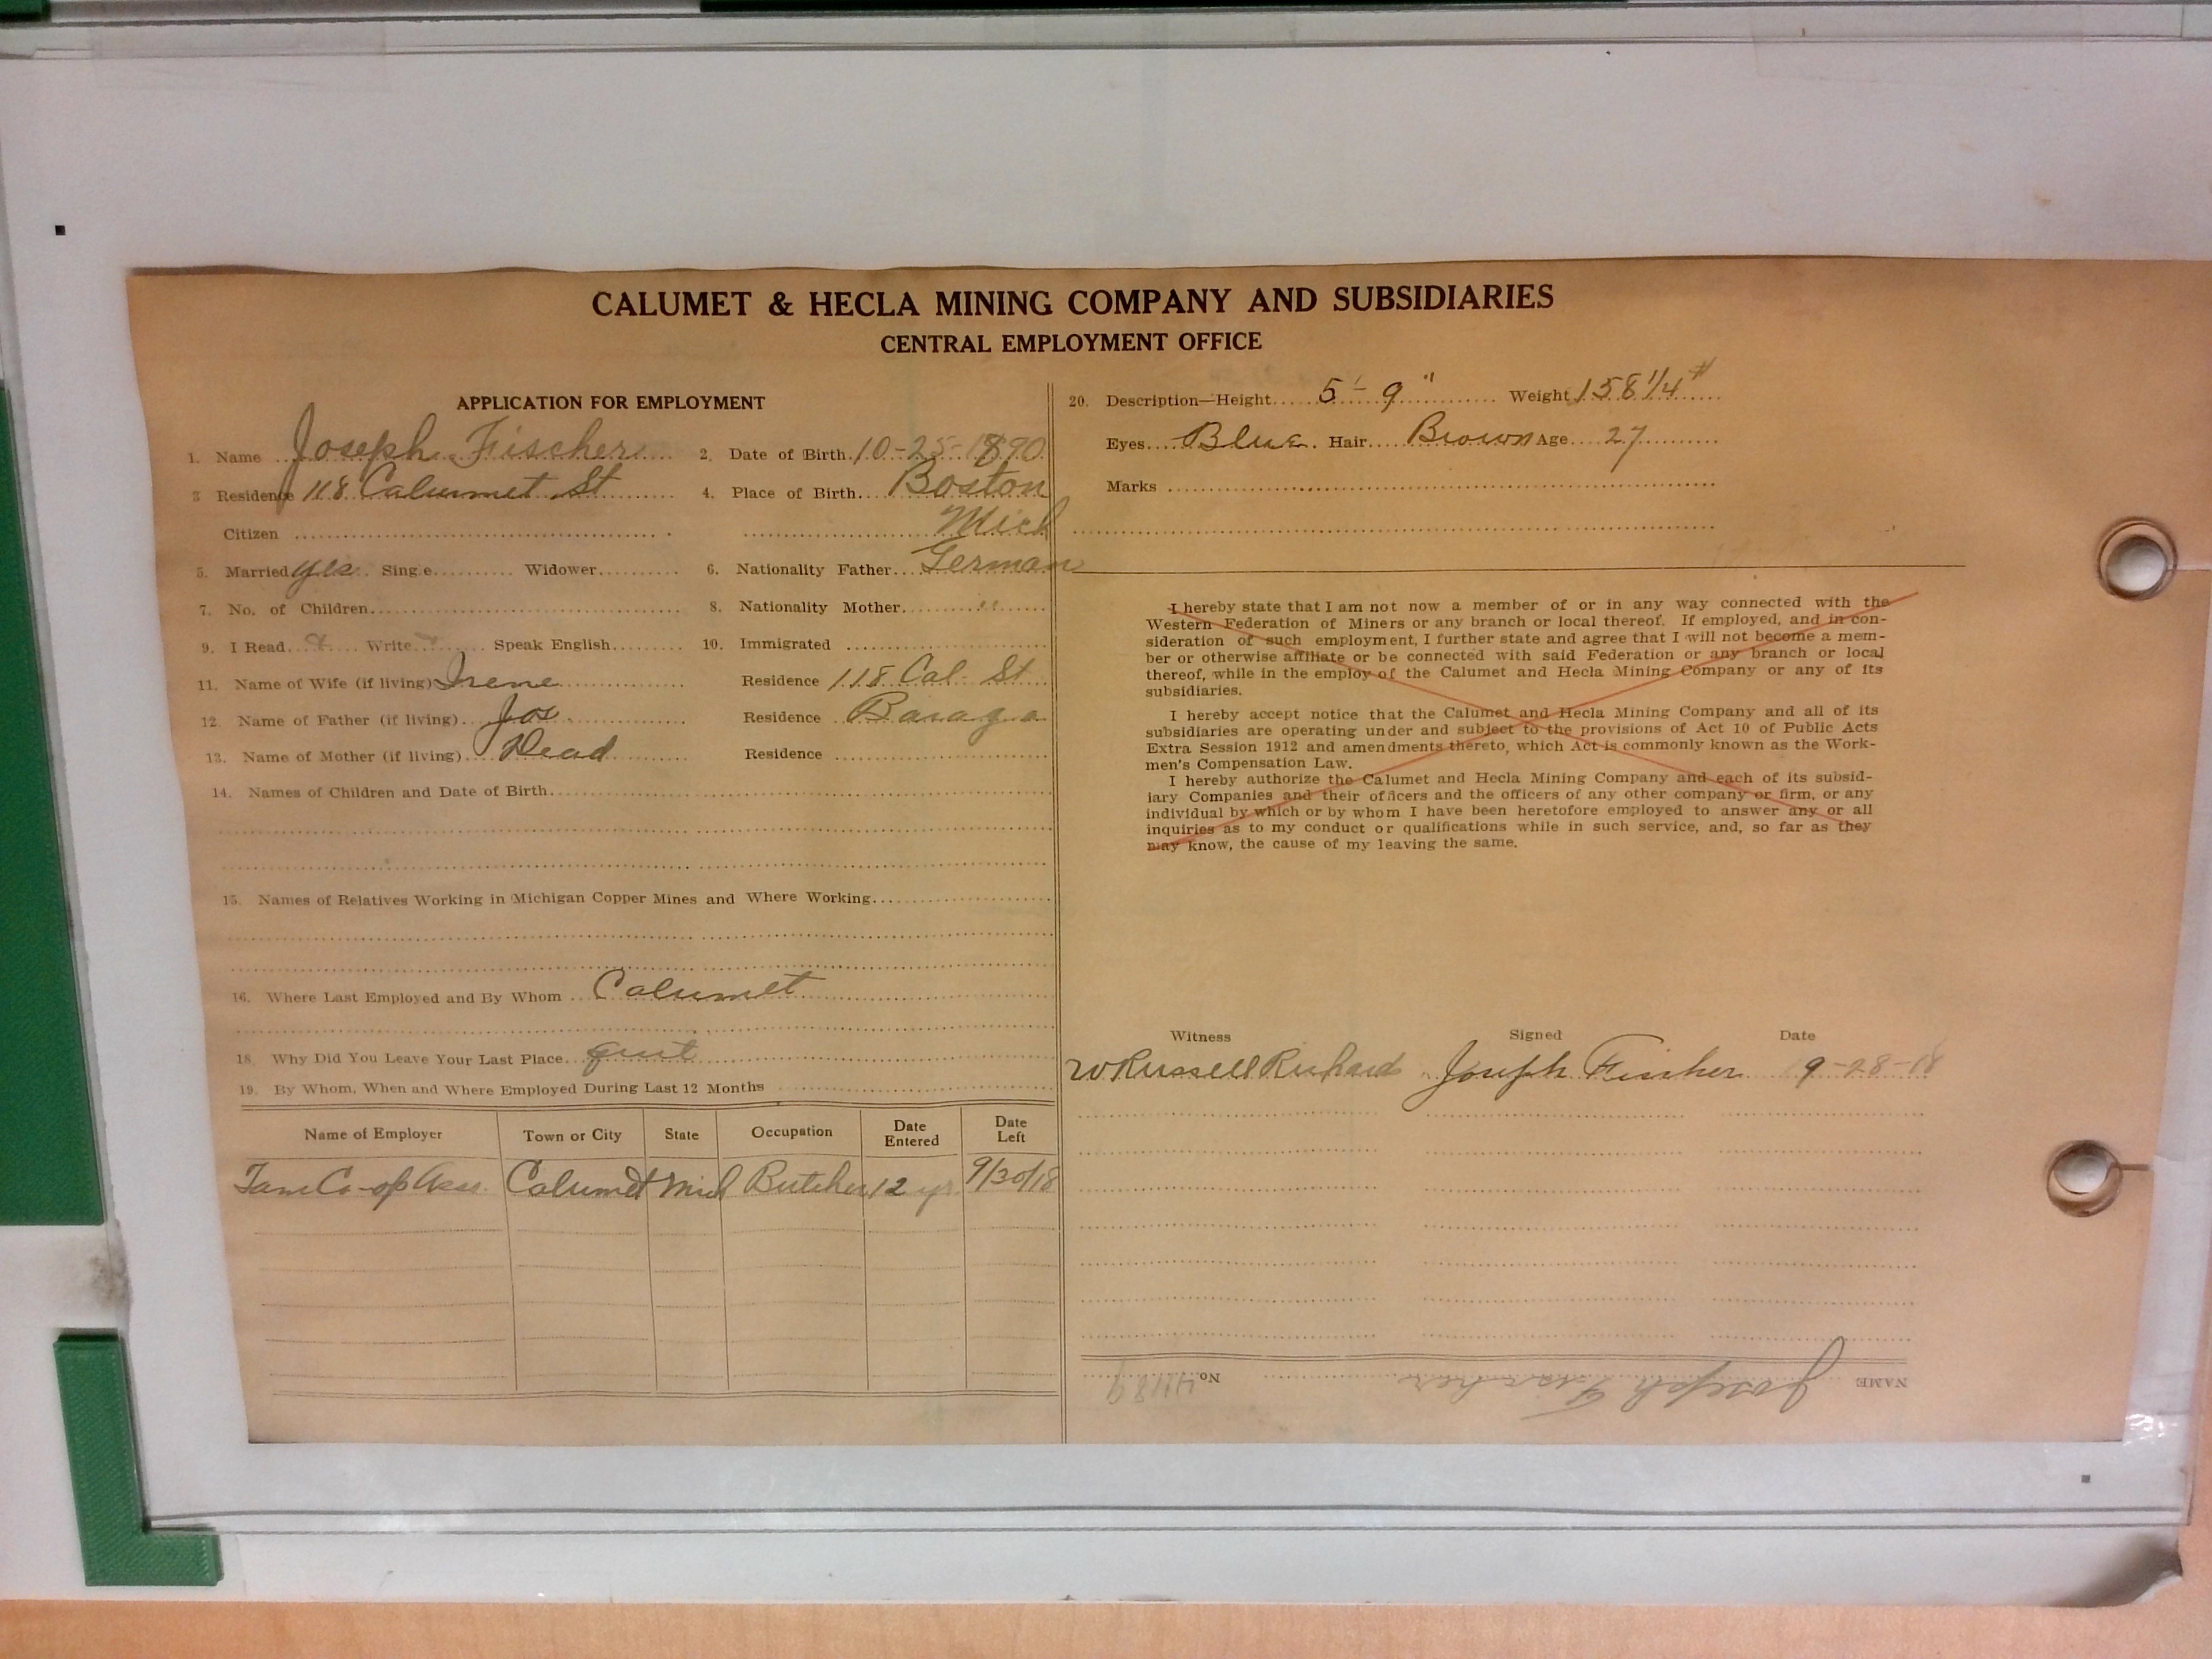 CALUMET & HECLA MINING COMPANY AND SUBSIDIARIES
CENTRAL EMPLOYMENT OFFICE
APPLICATION FOR EMPLOYMENT
1. Name Joseph Fischer 2. Date of Birth 10-25-1890
3 Residence 118 Calumet St 4. Place of Birth Boston
Citizen Mich
5. Married yes Single Widower 6. Nationality Father German
7. No. of Children 8. Nationality Mother "
9. I Read Write Speak English 10. Immigrated
11. Name of Wife (if living) Irene Residence 118 Cal. St
12. Name of Father (if living) Jos. Residence Baraga
13. Name of Mother (if living) Dead Residence
14. Names of Children and Date of Birth
15. Names of Relatives Working in Michigan Copper Mines and Where Working
16. Where Last Employed and By Whom Calumet
18. Why Did You Leave Your Last Place quit
19. By Whom, When and Where Employed During Last 12 Months
Name of Employer Town or City State Occupation Date Entered Date Left
Tam Co-op Ass. Calumet Mich Butcher 12 yr. 9/30/18
20. Description—Height 5'-9" Weight 158 1/4 #
Eyes Blue Hair Brown Age 27
Marks
I hereby state that I am not now a member of or in any way connected with the
Western Federation of Miners or any branch or local thereof. If employed, and in con-
sideration of such employment, I further state and agree that I will not become a mem-
ber or otherwise affiliate or be connected with said Federation or any branch or local
thereof, while in the employ of the Calumet and Hecla Mining Company or any of its
subsidiaries.
I hereby accept notice that the Calumet and Hecla Mining Company and all of its
subsidiaries are operating under and subject to the provisions of Act 10 of Public Acts
Extra Session 1912 and amendments thereto, which Act is commonly known as the Work-
men's Compensation Law.
I hereby authorize the Calumet and Hecla Mining Company and each of its subsid-
iary Companies and their officers and the officers of any other company or firm, or any
individual by which or by whom I have been heretofore employed to answer any or all
inquiries as to my conduct or qualifications while in such service, and, so far as they
may know, the cause of my leaving the same.
Witness Signed Date
W Russell Richards Joseph Fischer 9-28-18
NAME Joseph Fischer No.